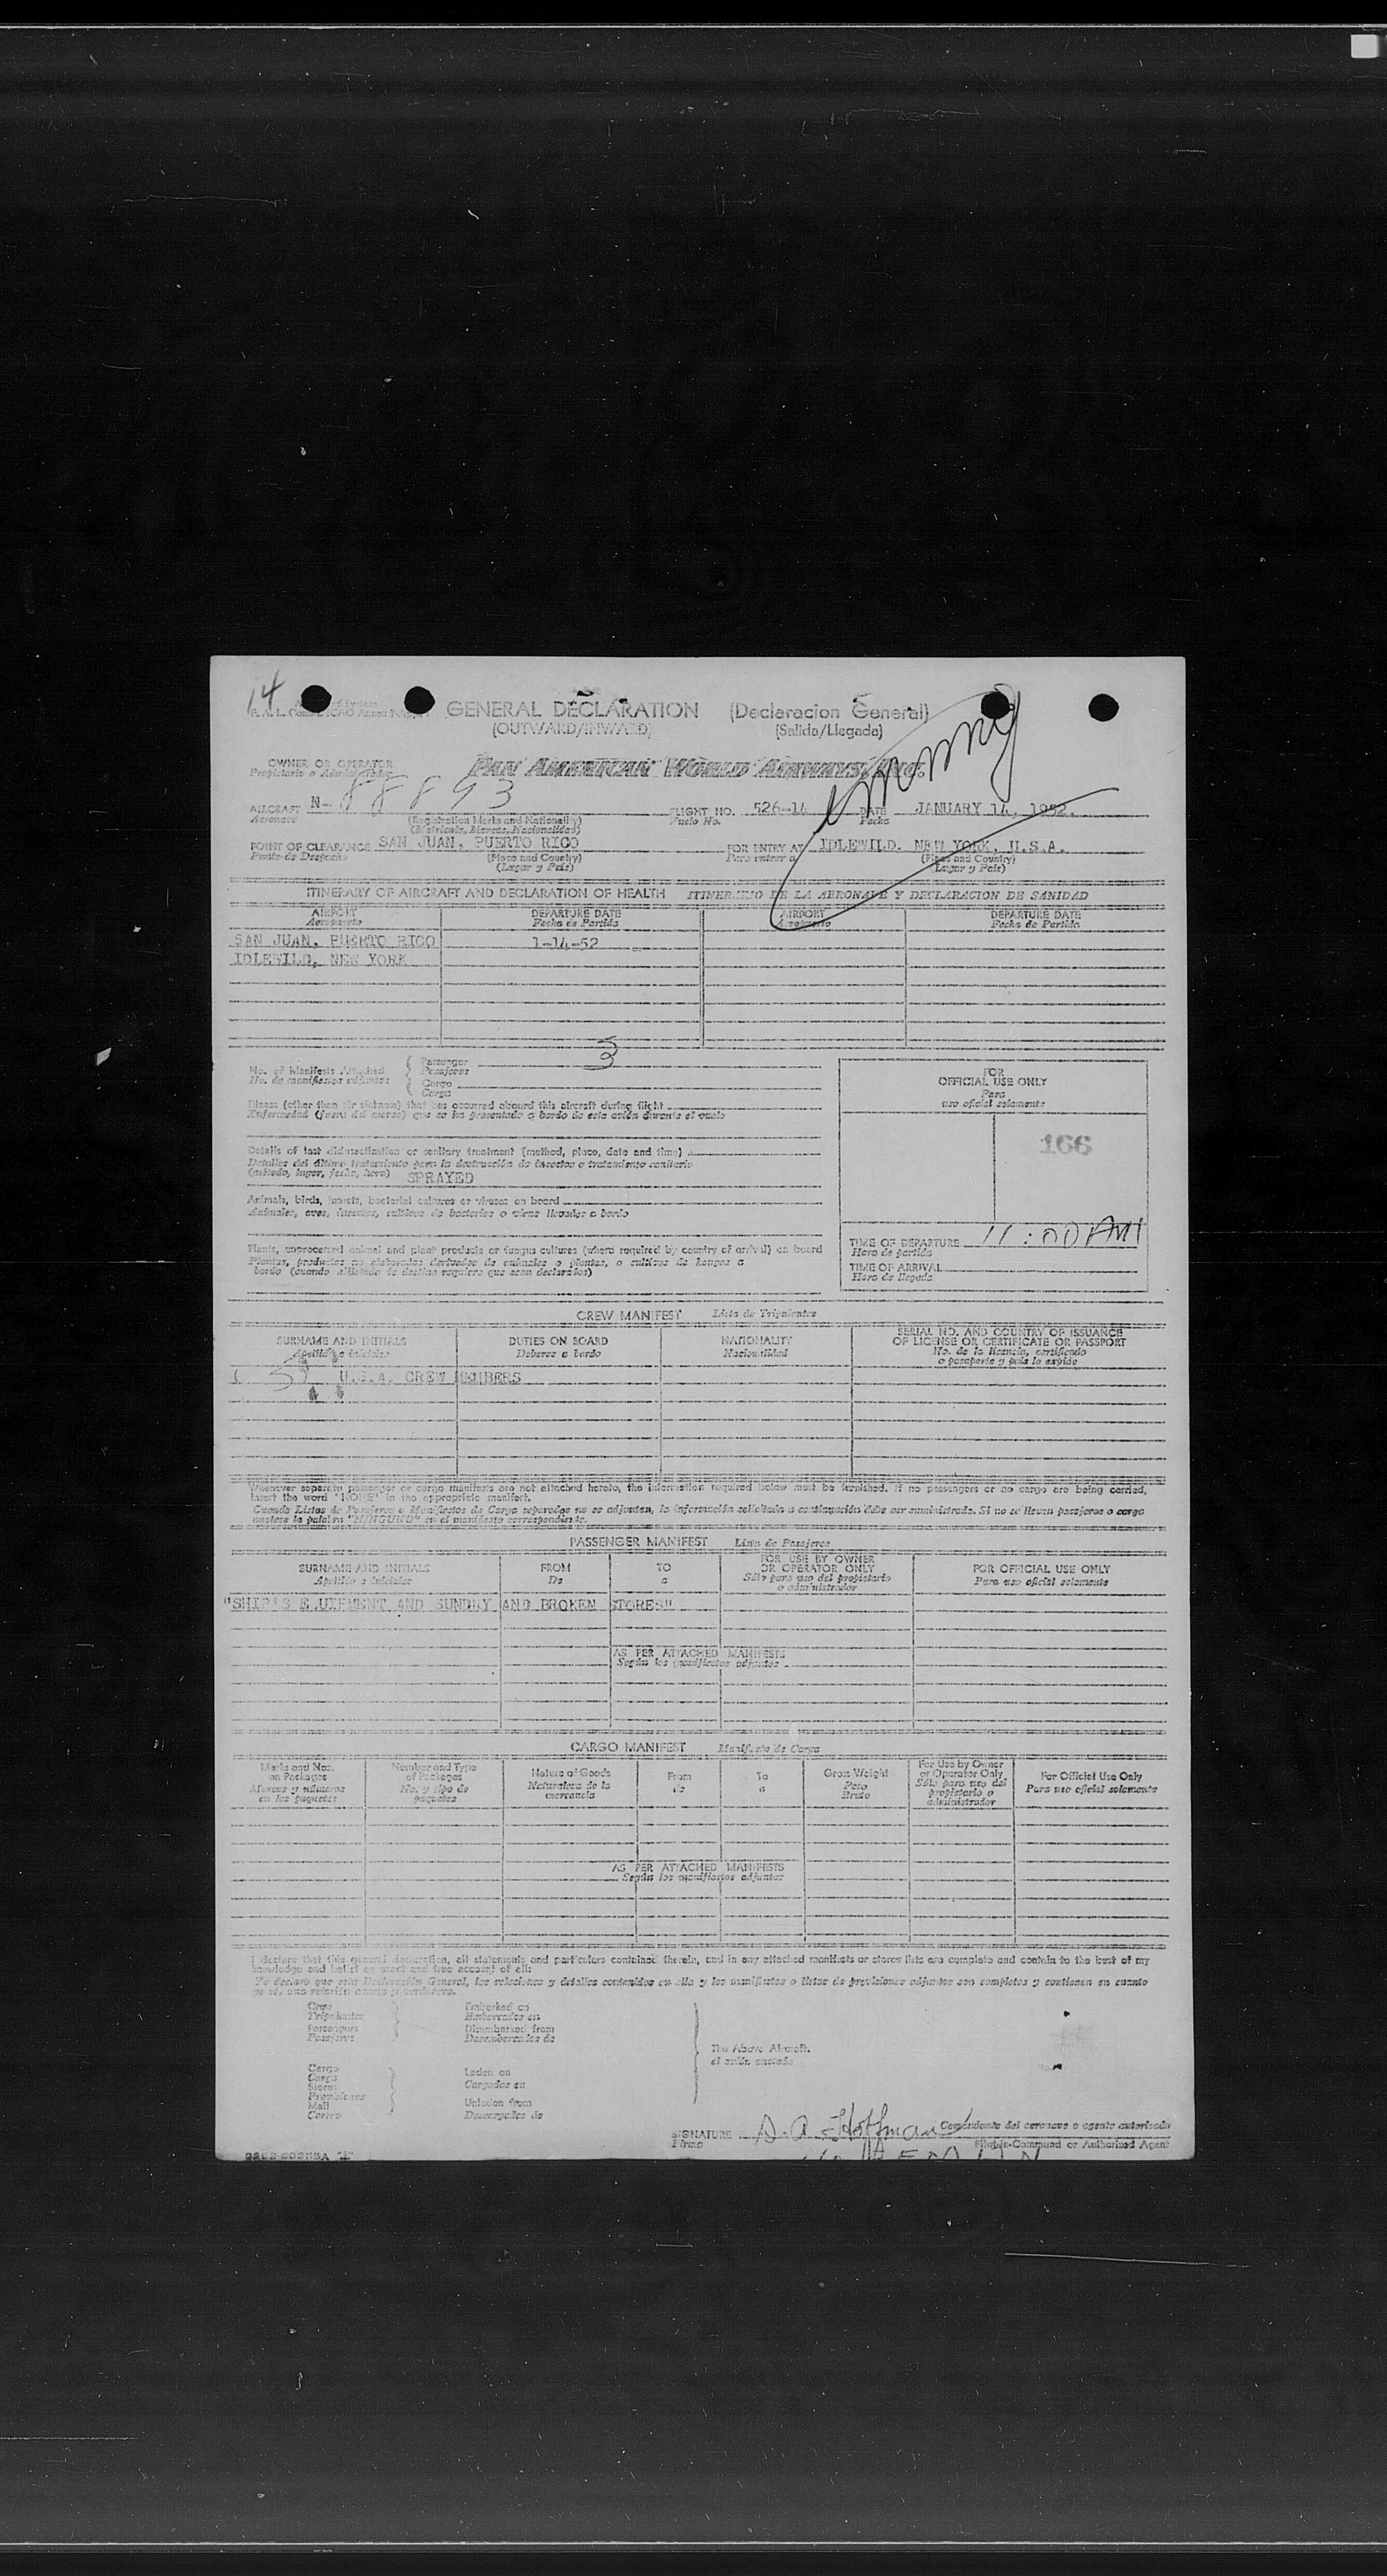 14
GENERAL DECLARATION (Declaracion General)
(OUTWARD/INWARD) (Salida/Llegada)
OWNER OR OPERATOR PAN AMERICAN WORLD AIRWAYS, INC.
Propietario o Administrador
AIRCRAFT N- 88893 FLIGHT NO. 526-14 DATE JANUARY 14, 1952.
Aeronave (Registration Marks and Nationality) Vuelo No. Fecha
(Matricula, Marcas, Nacionalidad)
POINT OF CLEARANCE SAN JUAN, PUERTO RICO FOR ENTRY AT IDLEWILD, NEW YORK, U.S.A.
Punto de Despacho (Place and Country) Para entrar a (Place and Country)
(Lugar y País) (Lugar y País)
ITINERARY OF AIRCRAFT AND DECLARATION OF HEALTH ITINERARIO DE LA AERONAVE Y DECLARACION DE SANIDAD
AIRPORT DEPARTURE DATE AIRPORT DEPARTURE DATE
Aeropuerto Fecha de Partida Aeropuerto Fecha de Partida
SAN JUAN, PUERTO RICO 1-14-52
IDLEWILD, NEW YORK
No. of Manifests Attached Passenger 3
No. de manifiestos adjuntos Pasajeros
Cargo
Carga
FOR
OFFICIAL USE ONLY
Para
uso oficial solamente
166
Illness (other than air sickness) that has occurred aboard this aircraft during flight
Enfermedad (fuera del mareo) que se ha presentado a bordo de este avión durante el vuelo
Details of last disinsectization or sanitary treatment (method, place, date and time)
Detalles del último tratamiento para la destrucción de insectos o tratamiento sanitario
(método, lugar, fecha, hora) SPRAYED
Animals, birds, insects, bacterial cultures or viruses on board
Animales, aves, insectos, cultivos de bacterias o virus llevados a bordo
TIME OF DEPARTURE 11:00 AM
Hora de partida
TIME OF ARRIVAL
Hora de llegada
Plants, unprocessed animal and plant products or fungus cultures (where required by country of arrival) on board
Plantas, productos no elaborados derivados de animales o plantas, o cultivos de hongos a
bordo (cuando el Estado de destino requiere que sean declarados)
CREW MANIFEST Lista de Tripulantes
SURNAME AND INITIALS DUTIES ON BOARD NATIONALITY SERIAL NO. AND COUNTRY OF ISSUANCE
OF LICENSE OR CERTIFICATE OR PASSPORT
Apellido e iniciales Deberes a bordo Nacionalidad No. de la licencia, certificado
o pasaporte y país lo expide
( 5 ) U.S.A. CREW MEMBERS
Whenever separate passenger or cargo manifests are not attached hereto, the information required below must be furnished. If no passengers or no cargo are being carried,
insert the word "NONE" in the appropriate manifest.
Cuando Listas de Pasajeros e Manifiestos de Carga separados no se adjuntan, la información solicitada a continuación debe ser suministrada. Si no se llevan pasajeros o carga
anotese la palabra "NINGUNO" en el manifiesto correspondiente.
PASSENGER MANIFEST Lista de Pasajeros
SURNAME AND INITIALS FROM TO FOR USE BY OWNER
OR OPERATOR ONLY FOR OFFICIAL USE ONLY
Apellido e iniciales De a Sólo para uso del propietario
o administrador Para uso oficial solamente
"SHIP'S E UIPMENT AND SUNDRY AND BROKEN STORES"
AS PER ATTACHED MANIFESTS
Según los manifiestos adjuntos
CARGO MANIFEST Manifiesto de Carga
Marks and Nos.
on Packages
Marcas y números
en los paquetes
Number and Type
of Packages
No. y tipo de
paquetes
Nature of Goods
Naturaleza de la
mercancía
From
de
To
a
Gross Weight
Peso
Bruto
For Use by Owner
or Operator Only
Sólo para uso del
propietario o
administrador
For Official Use Only
Para uso oficial solamente
AS PER ATTACHED MANIFESTS
Según los manifiestos adjuntos
I declare that this general declaration, all statements and particulars contained therein, and in any attached manifests or stores lists are complete and contain to the best of my
knowledge and belief an exact and true account of all:
Yo declaro que esta Declaración General, las relaciones y detalles contenidos en ella y los manifiestos o listas de provisiones adjuntos son completos y contienen en cuanto
yo sé, una relación exacta y verdadera.
Crew Embarked on
Tripulantes Embarcados en
Passengers Disembarked from
Pasajeros Desembarcados de
The Above Aircraft.
el avión anotado
Cargo Laden on
Carga Cargados en
Stores
Provisiones
Mail Unladen from
Correo Descargados de
SIGNATURE D. A. Hoffman Comandante del aeronave o agente autorizado
Firma Pilot-in-Command or Authorized Agent